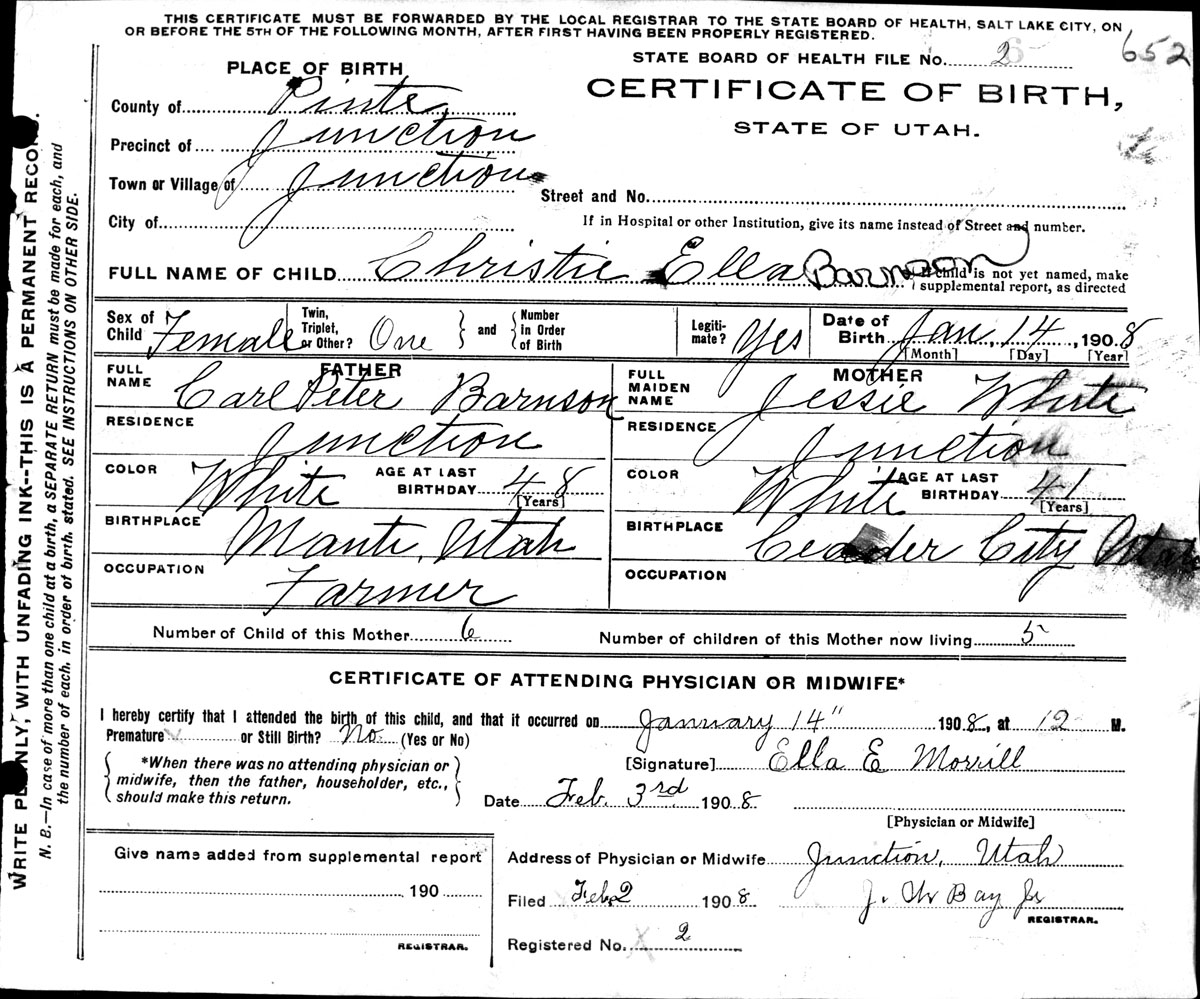 THIS CERTIFICATE MUST BE FORWARDED BY THE LOCAL REGISTRAR TO THE STATE BOARD OF HEALTH, SALT LAKE CITY, ON
OR BEFORE THE 5TH OF THE FOLLOWING MONTH, AFTER FIRST HAVING BEEN PROPERLY REGISTERED.
652
STATE BOARD OF HEALTH FILE No. 2
CERTIFICATE OF BIRTH,
STATE OF UTAH.
PLACE OF BIRTH
County of Piute
Precinct of Junction
Town or Village of Junction
Street and No.
City of
If in Hospital or other Institution, give its name instead of Street and number.
FULL NAME OF CHILD Christie Ella Barnson
If child is not yet named, make
supplemental report, as directed
Sex of Child Female
Twin, Triplet, or Other? One
and
Number in Order of Birth
Legiti-mate? Yes
Date of Birth Jan. 14, 1908
[Month] [Day] [Year]
FATHER
FULL NAME Carl Peter Barnson
RESIDENCE Junction
COLOR White
AGE AT LAST BIRTHDAY 48
[Years]
BIRTHPLACE Manti, Utah
OCCUPATION Farmer
MOTHER
FULL MAIDEN NAME Jessie White
RESIDENCE Junction
COLOR White
AGE AT LAST BIRTHDAY 41
[Years]
BIRTHPLACE Ceader City Utah
OCCUPATION
Number of Child of this Mother 6
Number of children of this Mother now living 5
CERTIFICATE OF ATTENDING PHYSICIAN OR MIDWIFE*
I hereby certify that I attended the birth of this child, and that it occurred on January 14" 1908, at 12 M.
Premature or Still Birth? No. (Yes or No)
*When there was no attending physician or
midwife, then the father, householder, etc.,
should make this return.
[Signature] Ella E Morrill
Date Feb. 3rd 1908
[Physician or Midwife]
Give name added from supplemental report
190
REGISTRAR.
Address of Physician or Midwife Junction, Utah
Filed Feb, 2 1908
J. W Bay Jr
REGISTRAR.
Registered No. 2
WRITE PLAINLY, WITH UNFADING INK--THIS IS A PERMANENT RECORD.
N. B.—In case of more than one child at a birth, a SEPARATE RETURN must be made for each, and
the number of each, in order of birth, stated. SEE INSTRUCTIONS ON OTHER SIDE.